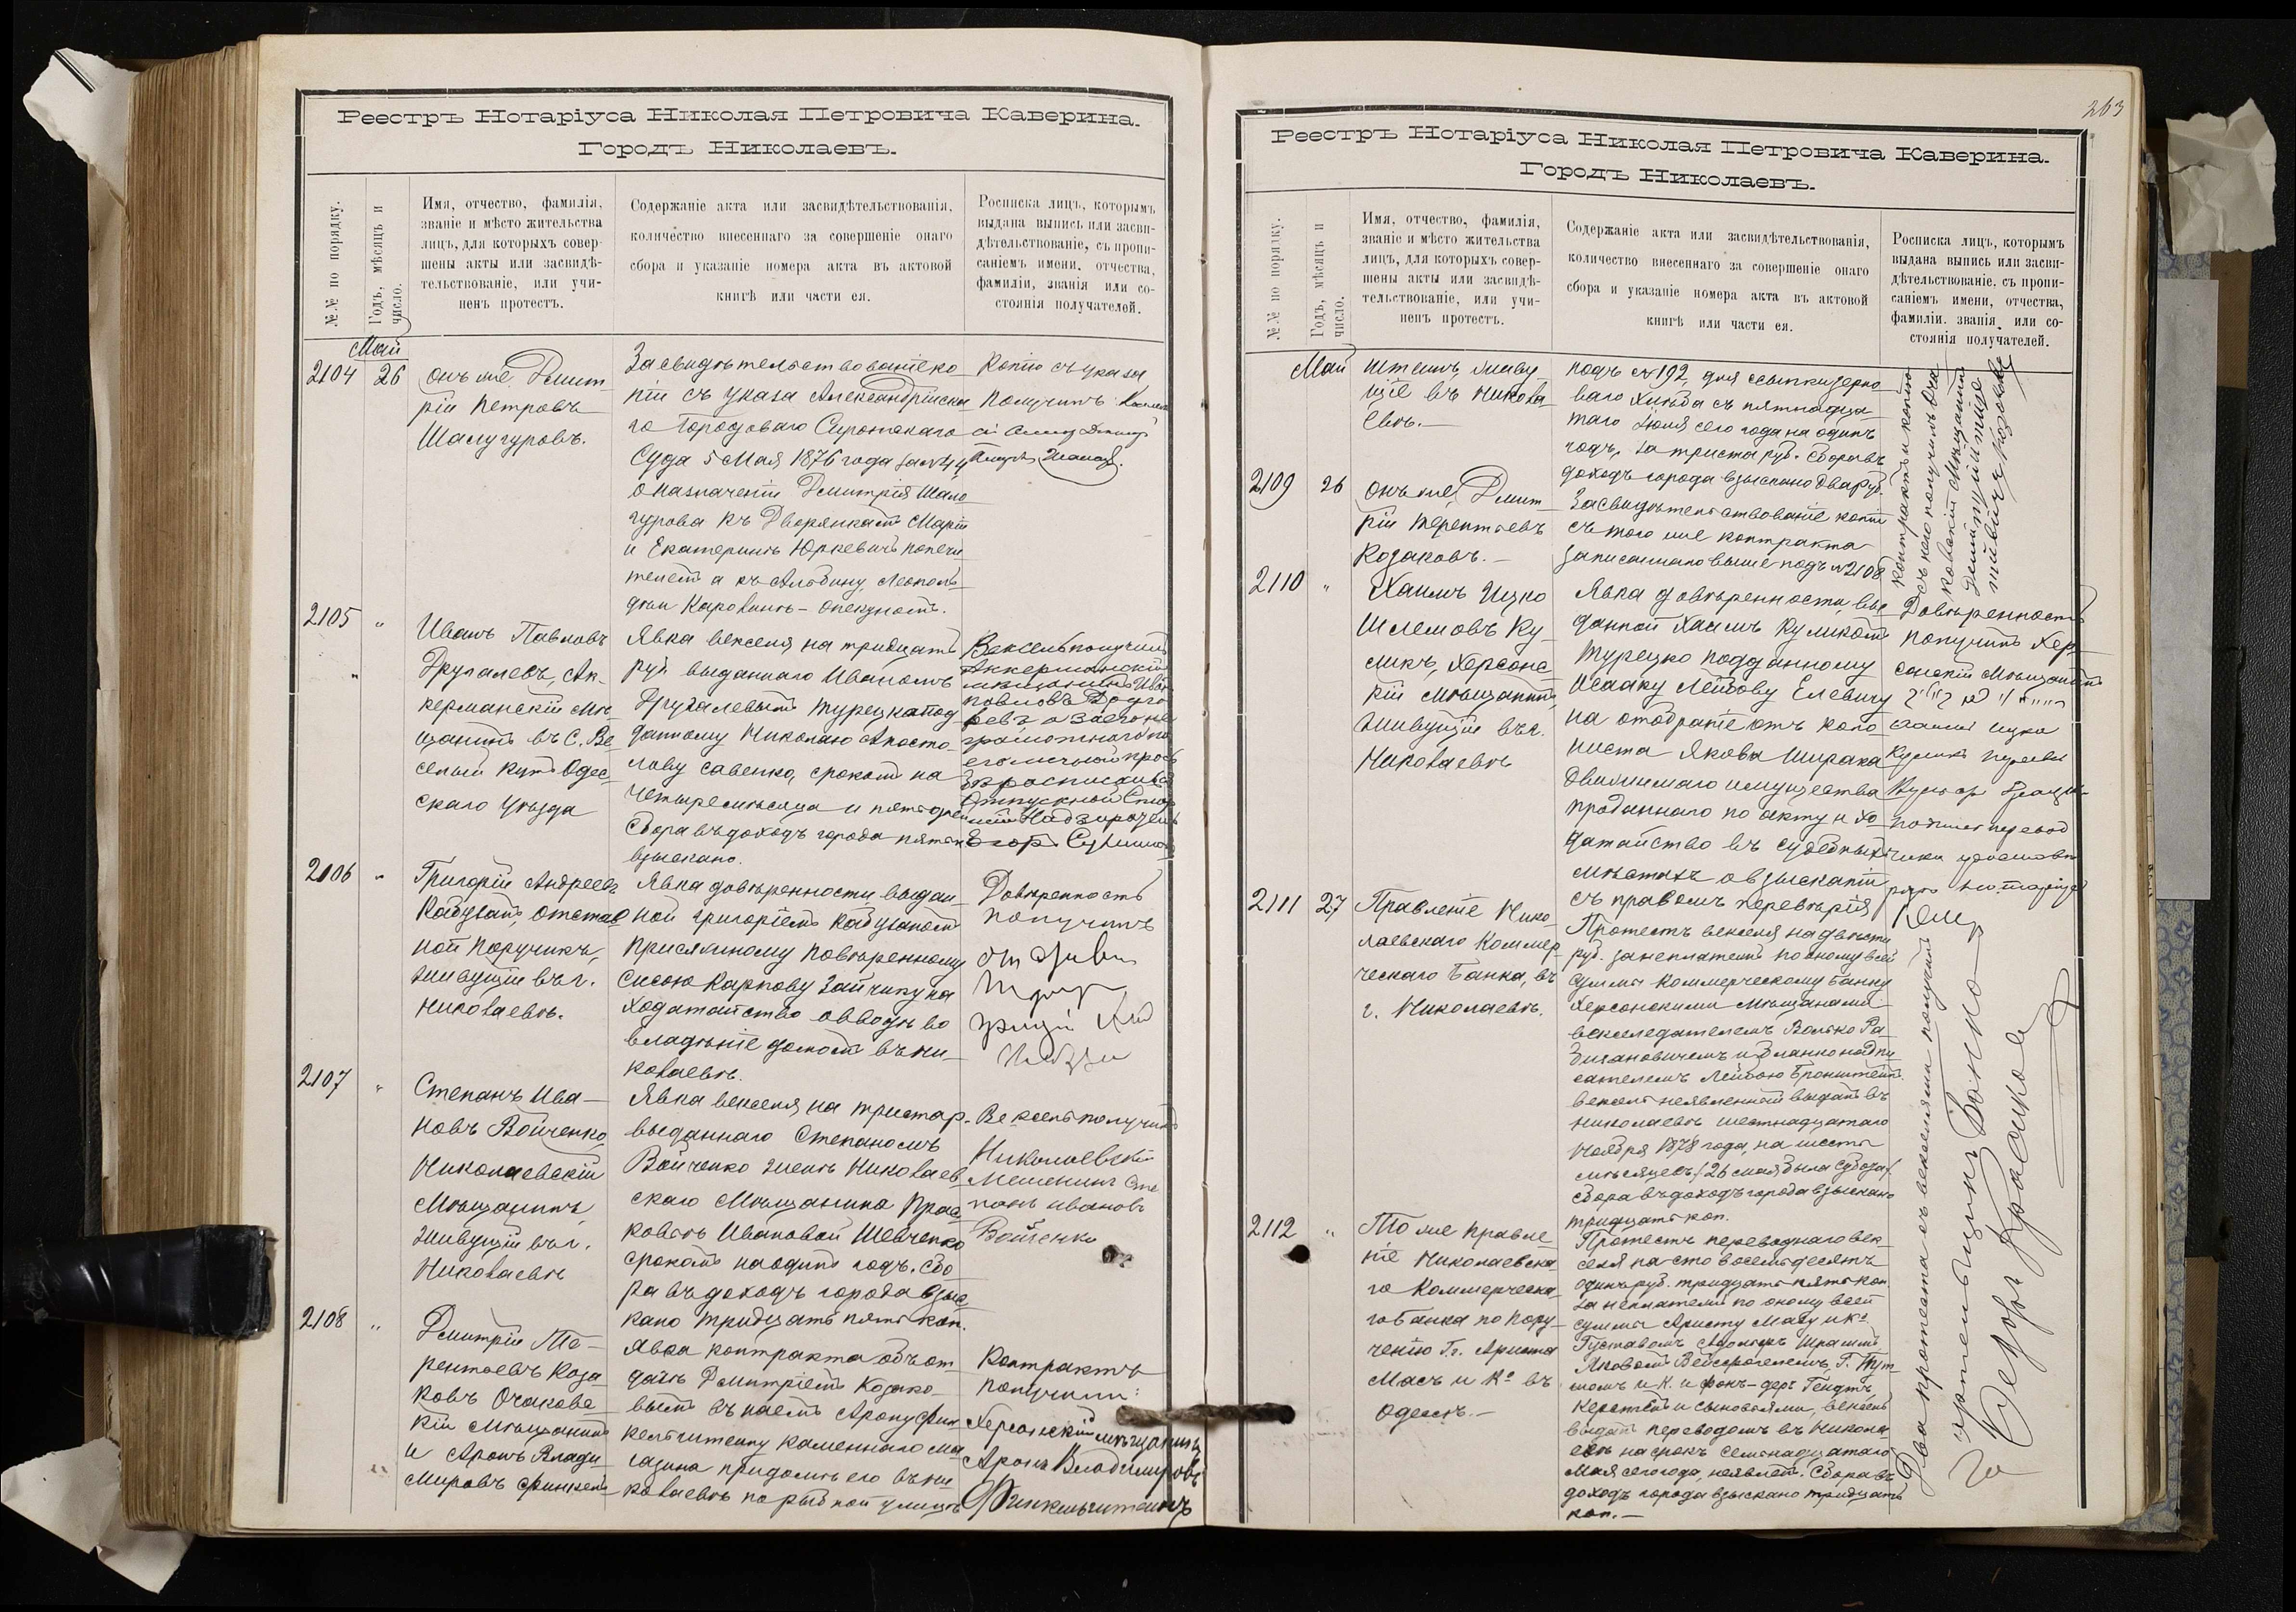 Реестръ Нотаріуса Николая Петровича Каверина.
Городъ Николаевъ.
№.№ по порядку.
Годъ, мѣсяцъ и
число.
Имя, отчество, фамилія,
званіе и мѣсто жительства
лицъ, для которыхъ совер-
шены акты или засвидѣ-
тельствованіе, или учи-
ненъ протестъ.
Содержаніе акта или засвидѣтельствованія,
количество внесеннаго за совершеніе онаго
сбора и указаніе номера акта въ актовой
книгѣ или части ея.
Росписка лицъ, которымъ
выдана выпись или засви-
дѣтельствованіе, съ пропи-
саніемъ имени, отчества,
фамиліи, званія или со-
стоянія получателей.
Май
2104 26
Онъ же, Дмит-
рій Петровъ
Шалугуровъ.
Засвидѣтельствованіе ко-
піи съ указа Александрійска-
го Городоваго Сиротскаго
Суда 5 Мая 1876 года за №44
о назначеніи Дмитрія Шалу-
гурова къ Дворянкамъ Маріи
и Екатеринѣ Юркевичъ попечи-
телемъ а къ Альбину, Леополь-
дъ и Каролинѣ - опекуномъ.
Копію съ указа
получилъ
2105 "
Иванъ Павловъ
Другалевъ, Ак-
керманскій Мѣ-
щанинъ въ С. Ве-
селый Кутъ Одес-
скаго Уѣзда
Явка векселя на тридцать
руб. выданнаго Иваномъ
Другалевымъ турецкопод-
данному Николаю Апосто-
лову Савенко, срокомъ на
четыре мѣсяца и пятъ дней
Сбора въ доходъ города пять к
взыскано.
Вексель получилъ
Аккерманскій
мѣщанинъ Иван
Павловъ Друга
левъ, а за его не
грамотнаго по
его личной прось
бѣ росписался
Отпускной Стар
шій Надзиратель
Егоръ
2106 "
Григорій Андреевъ
Кабузанъ, отстав-
ной Поручикъ,
живущій въ г.
Николаевѣ.
Явка довѣренности выдан-
ной Григоріемъ Кабузаномъ
Присяжному Повѣренному
Сысою Карпову Зайчику на
ходатайство о вводѣ во
владѣніе домомъ въ Ни-
колаевѣ.
Довѣренность
получилъ
2107 "
Степанъ Ива-
новъ Войченко,
Николаевскій
Мѣщанинъ,
Живущій въ г.
Николаевѣ
Явка векселя на триста р.
выданнаго Степаномъ
Войченко женѣ Николаев-
скаго Мѣщанина Прас-
ковьѣ Ивановой Шевченко
срокомъ на одинъ годъ. Сбо-
ра въ доходъ города взыс-
кано тридцать пять коп.
Вексель получилъ
Николаевскій
Мещенинъ Сте
панъ Ивановъ
Войченко
2108 "
Дмитрій Те-
рентьевъ Коза-
ковъ Очаковс-
кій Мѣщанинъ
и Аронъ Влади-
міровъ Финкель-
Явка контракта объ от-
дачѣ Дмитріемъ Козако-
вымъ въ наемъ Арону Фин-
кельштейну каменнаго ма-
газина при домѣ его въ Ни-
колаевѣ по рыбной улицѣ
Контрактъ
получили:
Херсонскій мѣщанинъ
Аронъ Владиміровъ
Финкельштейнъ
263
Реестръ Нотаріуса Николая Петровича Каверина.
Городъ Николаевъ.
№.№ по порядку.
Годъ, мѣсяцъ и
число.
Имя, отчество, фамилія,
званіе и мѣсто жительства
лицъ, для которыхъ совер-
шены акты или засвидѣ-
тельствованіе, или учи-
ненъ протестъ.
Содержаніе акта или засвидѣтельствованія,
количество внесеннаго за совершеніе онаго
сбора и указаніе номера акта въ актовой
книгѣ или части ея.
Росписка лицъ, которымъ
выдана выпись или засви-
дѣтельствованіе, съ пропи-
саніемъ имени, отчества,
фамиліи, званія или со-
стоянія получателей.
Май
штейнъ, живу-
щіе въ Никола-
евѣ.
подъ №192, для ссыпки зерно-
ваго хлѣба съ пятнадца-
таго Іюля сего года на одинъ
годъ, за триста руб. Сбора въ
доходъ города взыскано два руб.
контрактъ и копію
съ него получилъ Оча
ковскій Мѣщанинъ
2109 26
Онъ же, Дмит-
рій Терентьевъ
Козаковъ.
Засвидѣтельствованіе копіи
съ того же контракта
записаннаго выше подъ №2108
2110 "
Хаимъ Ицко
Шлемовъ Ку-
ликъ, Херсонс-
кій Мѣщанинъ,
живущій въ г.
Николаевѣ
Явка довѣренности, вы-
данной Хаимъ Куликомъ
Турецко подданному
Исааку Лейбову Елевичу
на отобраніе отъ коло-
ниста Якова Ширака
движимаго имущества
проданнаго по акту и хо-
датайство въ судебныхъ
мѣстахъ о взысканіи
съ правомъ перевѣрія
Довѣренность
получилъ Хер-
сонскій Мѣщанинъ
2111 27
Правленіе Нико-
лаевскаго Коммер-
ческаго Банка, въ
г. Николаевѣ.
Протестъ векселя на двѣсти
руб. за неплатежъ по оному всей
суммы Коммерческому Банку
Херсонскими Мѣщанами
векселедателемъ Волько Ра-
бинановичемъ и бланконадпи-
сателемъ Лейбою Бронштейнъ
вексель неявленный выданъ въ
Николаевѣ шестнадцатаго
Ноября 1878 года, на шесть
мѣсяцевъ (26 мая была суббота)
сбора въ доходъ города взыскано
тридцать коп.
2112 "
То же Правле-
ніе Николаевска-
го Коммерческа-
го Банка по Пору-
ченію Гг. Ариста
Масъ и Ко въ
Одессѣ.
Протестъ переводнаго век-
селя на сто восемьдесятъ
одинъ руб. тридцать пять коп
за неплатежъ по оному всей
суммы Аристу Масу и Ко
Мая сего года, неявлен. Сбора въ
доходъ города взыскано тридцать
коп.
Два протеста съ векселями получилъ